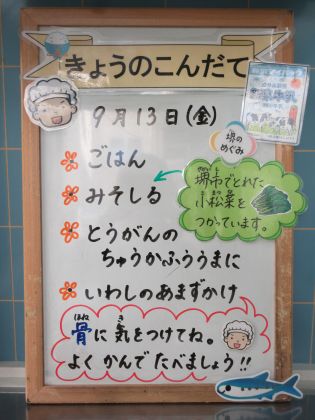 きょうのこんだて
9月13日(金)
堺の
めぐみ
ごはん
みそしる
堺市でとれた
小松菜を
つかっています。
とうがんの
ちゅうかふううまに
いわしのあまずかけ
骨に気をつけてね。
よくかんでたべましょう!!